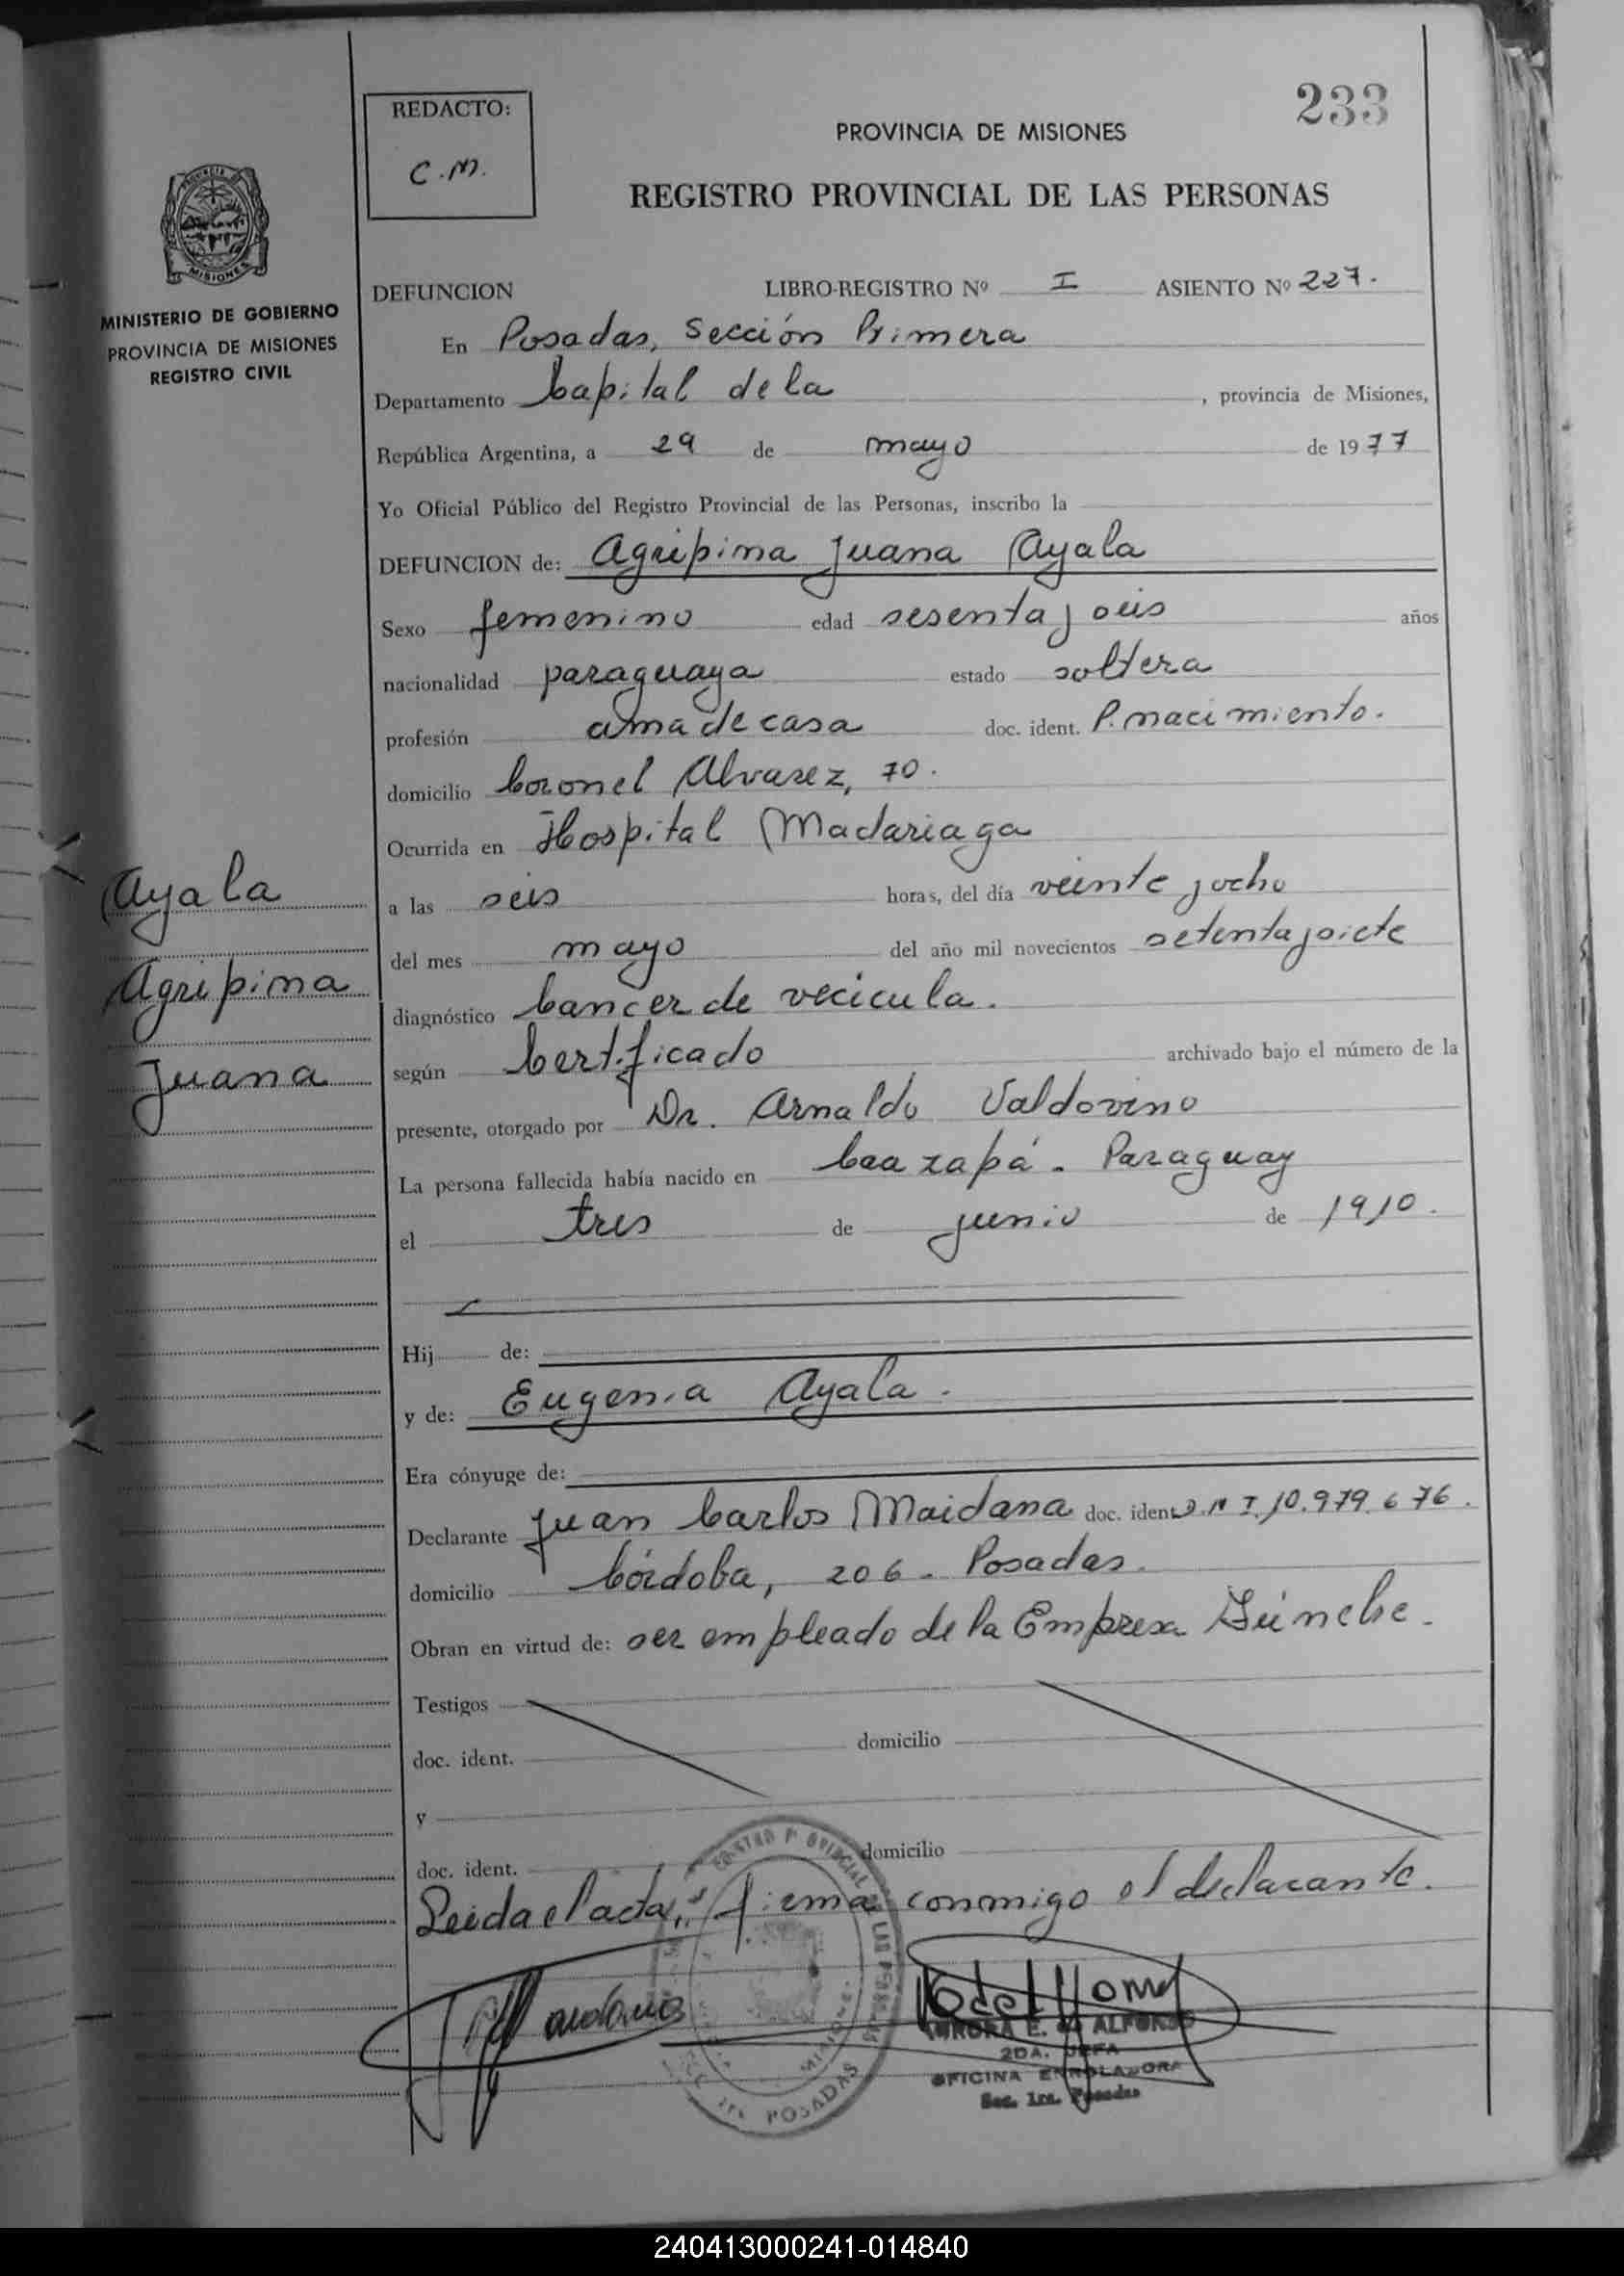 233
REDACTO:
C.M.
PROVINCIA DE MISIONES
REGISTRO PROVINCIAL DE LAS PERSONAS
PROVINCIA DE
MISIONES
MINISTERIO DE GOBIERNO
PROVINCIA DE MISIONES
REGISTRO CIVIL
DEFUNCION LIBRO-REGISTRO Nº I ASIENTO Nº 227.
En Posadas, Sección Primera
Departamento Capital de la , provincia de Misiones,
República Argentina, a 29 de mayo de 1977
Yo Oficial Público del Registro Provincial de las Personas, inscribo la
DEFUNCION de: Agripina Juana Ayala
Sexo femenino edad sesenta y seis años
nacionalidad paraguaya estado soltera
profesión ama de casa doc. ident. P. nacimiento.
domicilio Coronel Alvarez, 70.
Ocurrida en Hospital Madariaga
Ayala
Agripina
Juana
a las seis horas, del día veinte y ocho
del mes mayo del año mil novecientos setenta y siete
diagnóstico Cancer de vecicula.
según Certificado archivado bajo el número de la
presente, otorgado por Dr. Arnaldo Valdovino
La persona fallecida había nacido en Caazapá - Paraguay
el tres de junio de 1910.
Hij de:
y de: Eugenia Ayala.
Era cónyuge de:
Declarante Juan Carlos Maidana doc. ident. D.N.I. 10.979.676.
domicilio Córdoba, 206 - Posadas.
Obran en virtud de: ser empleado de la Empresa Günche.
Testigos
doc. ident. domicilio
y
doc. ident. domicilio
Leida el acta, firma conmigo el declarante.
AURORA E. de ALFONSO
2DA. JEFA
OFICINA ENROLADORA
Sec. 1ra. Posadas
POSADAS
240413000241-014840